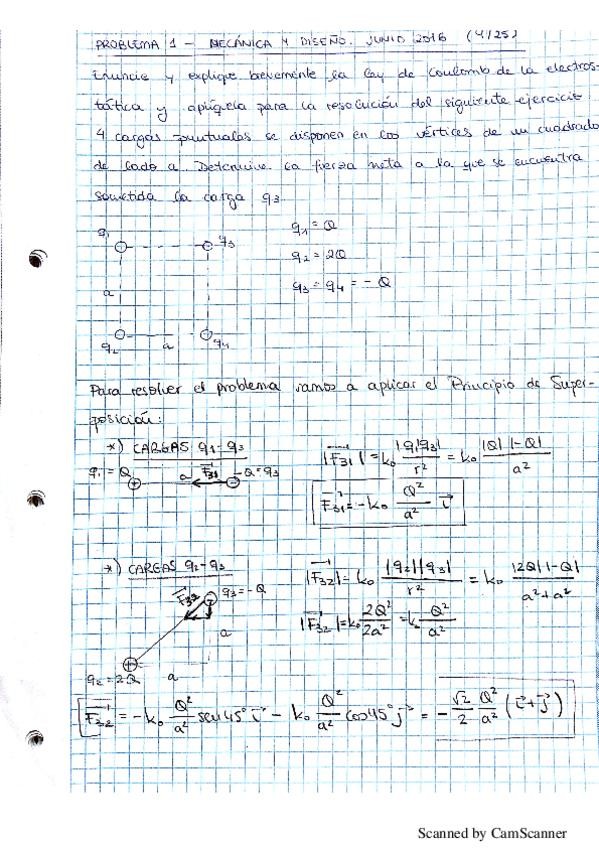 PROBLEMA 1 - MECÁNICA Y DISEÑO. JUNIO 2016 (4/25)
Enuncie y explique brevemente la ley de Coulomb de la electros-
tática y aplíquela para la resolución del siguiente ejercicio.
4 cargas puntuales se disponen en los vértices de un cuadrado
de lado a. Determine la fuerza neta a la que se encuentra
sometida la carga q3.
q1 q3 q1 = Q
q2 = 2Q
a q3 = q4 = -Q
q2 a q4
Para resolver el problema vamos a aplicar el Principio de Super-
posición:
*) CARGAS q1-q3 |F31| = k0 |q1||q3| / r² = k0 |Q||-Q| / a²
q1 = Q a F31 -Q = q3
F31 = -k0 Q²/a² i
*) CARGAS q2-q3 |F32| = k0 |q2||q3| / r² = k0 |2Q||-Q| / a²+a²
F32 q3 = -Q
a |F32| = k0 2Q²/2a² = k Q²/a²
q2 = 2Q a
F32 = -k0 Q²/a² sen45° i - k0 Q²/a² cos45° j = -√2/2 Q²/a² (i+j)
Scanned by CamScanner